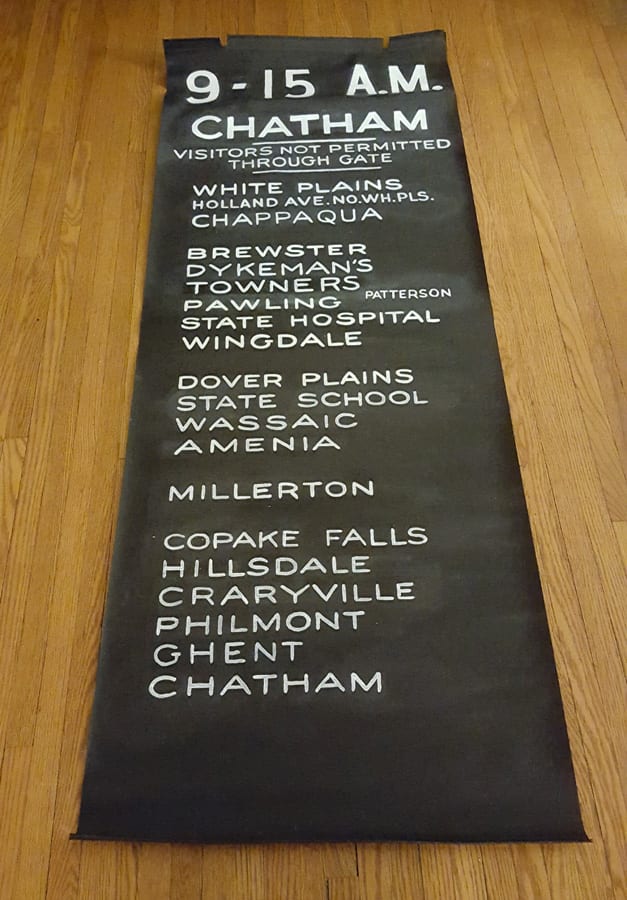 9-15 A.M.
CHATHAM
VISITORS NOT PERMITTED
THROUGH GATE
WHITE PLAINS
HOLLAND AVE. NO. WH. PLS.
CHAPPAQUA
BREWSTER
DYKEMAN'S
TOWNERS
PATTERSON
PAWLING
STATE HOSPITAL
WINGDALE
DOVER PLAINS
STATE SCHOOL
WASSAIC
AMENIA
MILLERTON
COPAKE FALLS
HILLSDALE
CRARYVILLE
PHILMONT
GHENT
CHATHAM